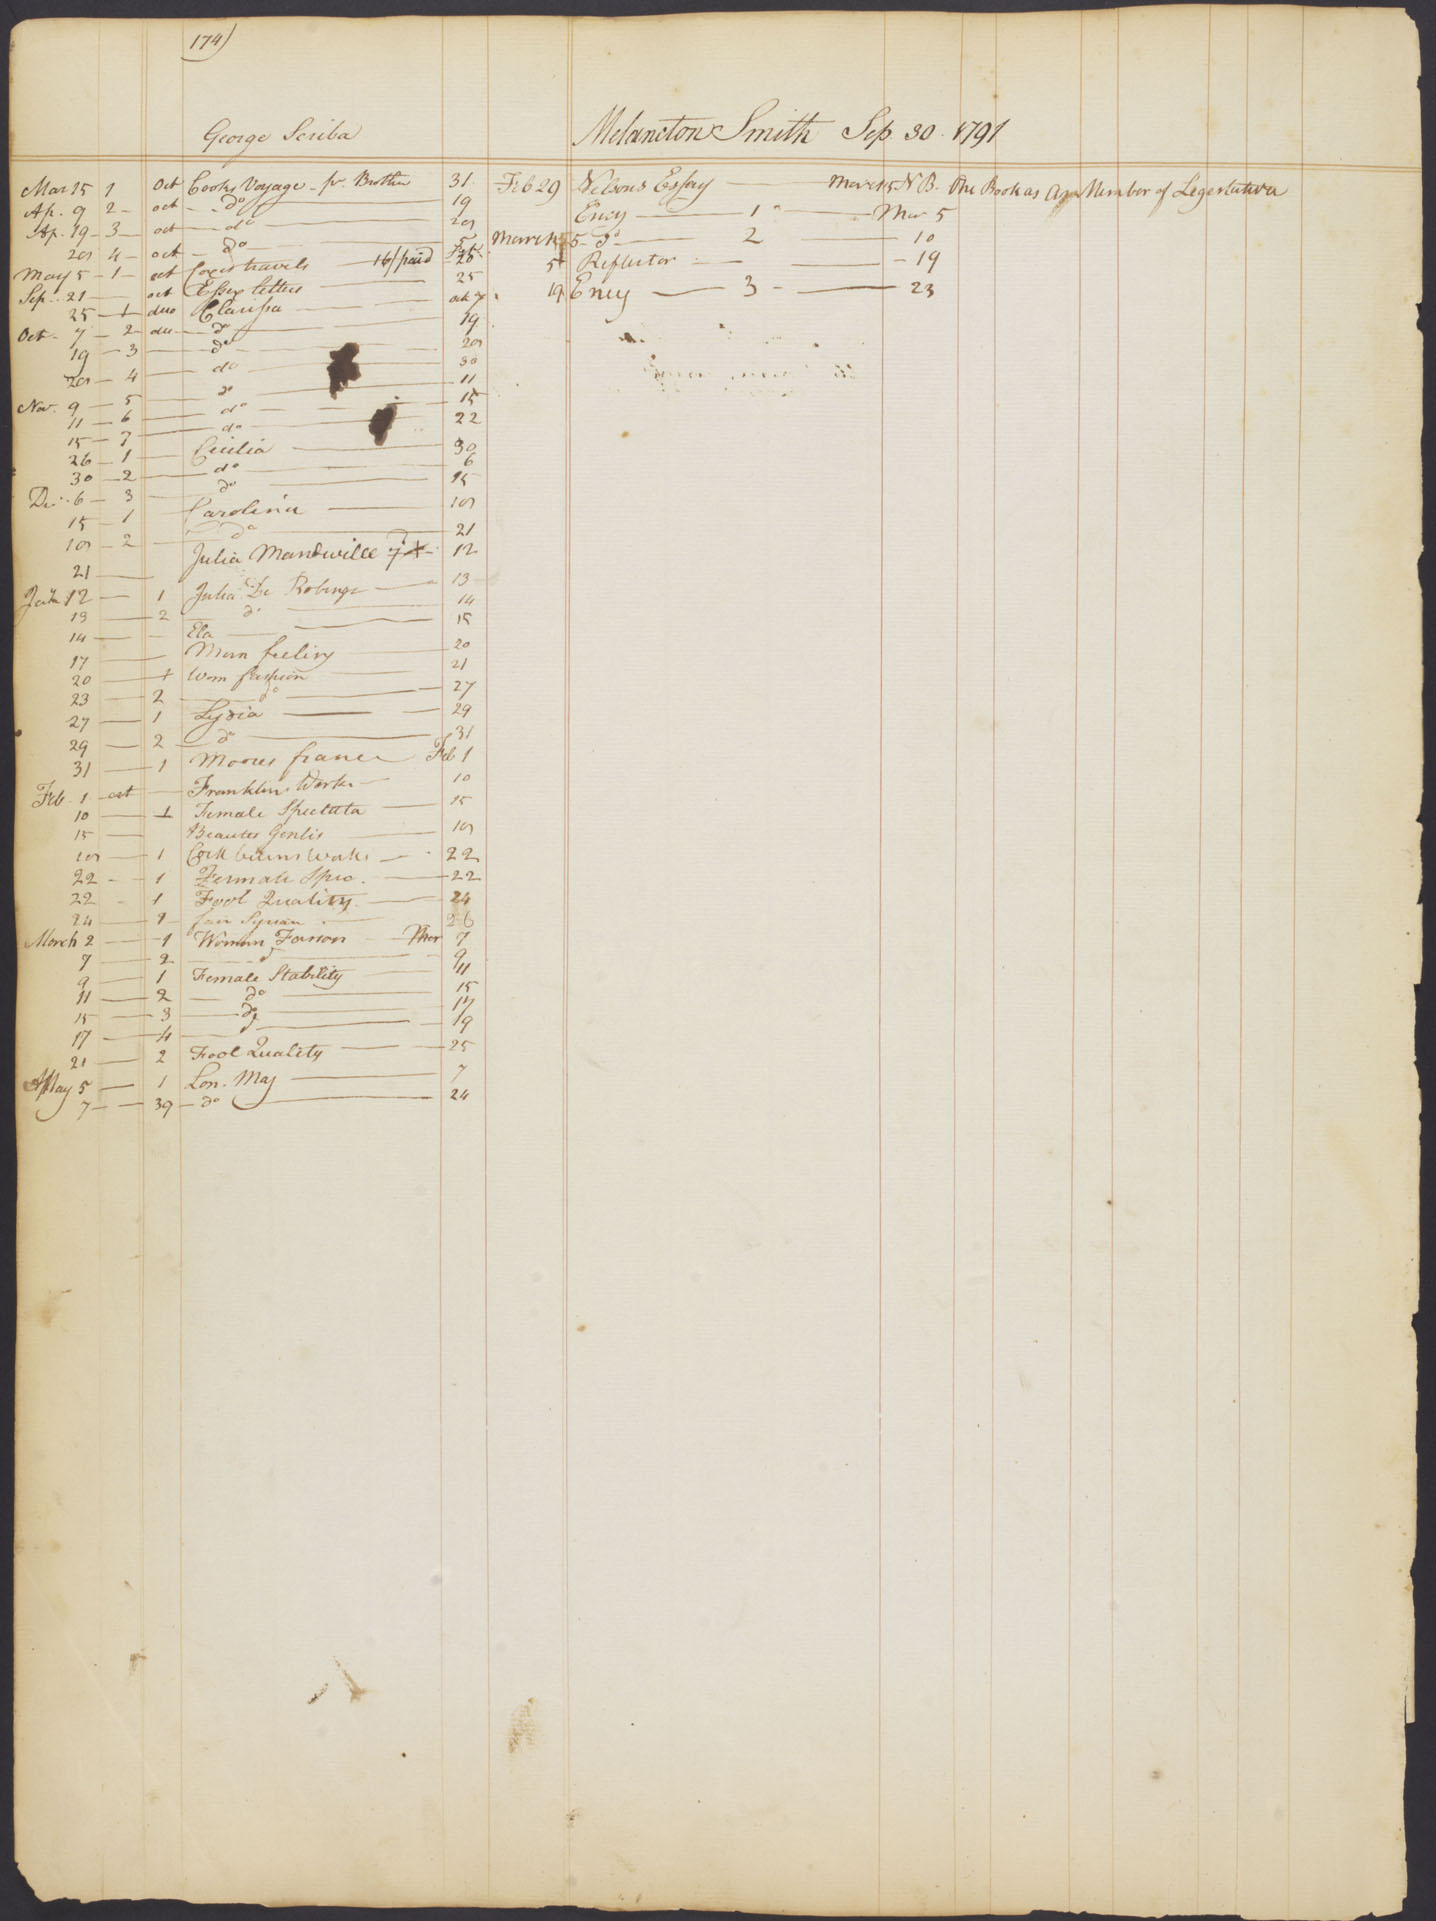 174)
George Scriba
Mar 25 1 oct Cooks Voyage - pr. Brother 31
Ap. 9 2 - oct - do 19
Ap. 19 - 3 - oct - do 28
28 4 - oct - do 5
May 5 - 1 - oct Coxes travels - 16/paid 26
Sep. 21 - oct Essex letters 25
25 - 1 duo Clarissa oct 7
Oct. 7 - 2 - duo - do 19
19 - 3 - do 28
28 - 4 - do 30
Nov. 9 - 5 - do 11
11 - 6 - do 15
15 - 7 - do 22
26 - 1 - Cicilia 30
30 - 2 - do 6
De. 6 - 3 - do 15
15 - 1 Carolina 18
18 - 2 - do 21
21 - Julia Mandville 12
12 - 1 Julia De Robinge 13
13 - 2 do 14
14 - Ela 15
17 - Man feeling 20
20 - 1 Wom fashion 21
23 - 2 - do - 27
27 - 1 Lydia - 29
29 - 2 - do - 31
31 - 1 Moores france Feb 1
Feb. 1 - oct - Franklins Works - 10
10 - 1 Female Spectata - 15
15 - Beauties Genlis - 18
18 - 1 Cockburns Works - 22
22 - 1 Female Spec. - 22
22 - 1 Fool Quality - 24
24 - 1 fair Syrian - 26
March 2 - 1 Woman Fason - Mar 7
7 - 2 - do - 9
9 - 1 Female Stability - 11
11 - 2 - do - 15
15 - 3 - do - 17
17 - 4 - do - 19
21 - 2 Fool Quality - 25
May 5 - 1 Lon. Mag - 7
7 - 39 - do - 24
Melancton Smith Sep. 30. 1791
Feb 29 Nelsons Essay - March 5 N B. the Book as A Member of Legeslatuer
Ency - 1 - Mar 5
March 5 - do - 2 - 10
5 Reflector - 19
19 Ency - 3 - 23